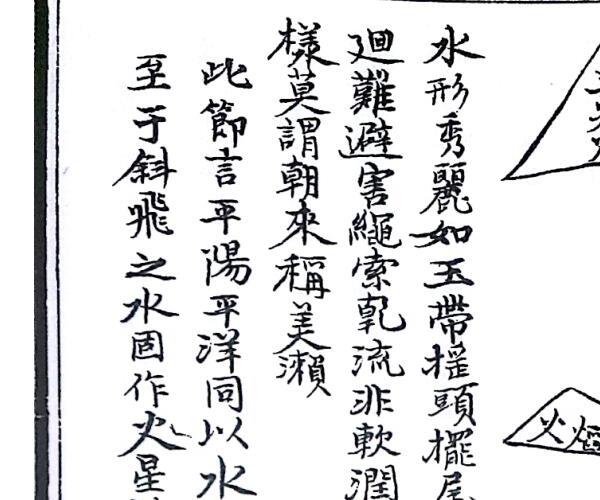 水形秀麗如玉帶搖頭擺尾
廻難避害繩索乾流非軟潤
樣莫謂朝來稱美瀨
此節言平陽平洋同以水
至于斜飛之水固作火星
火